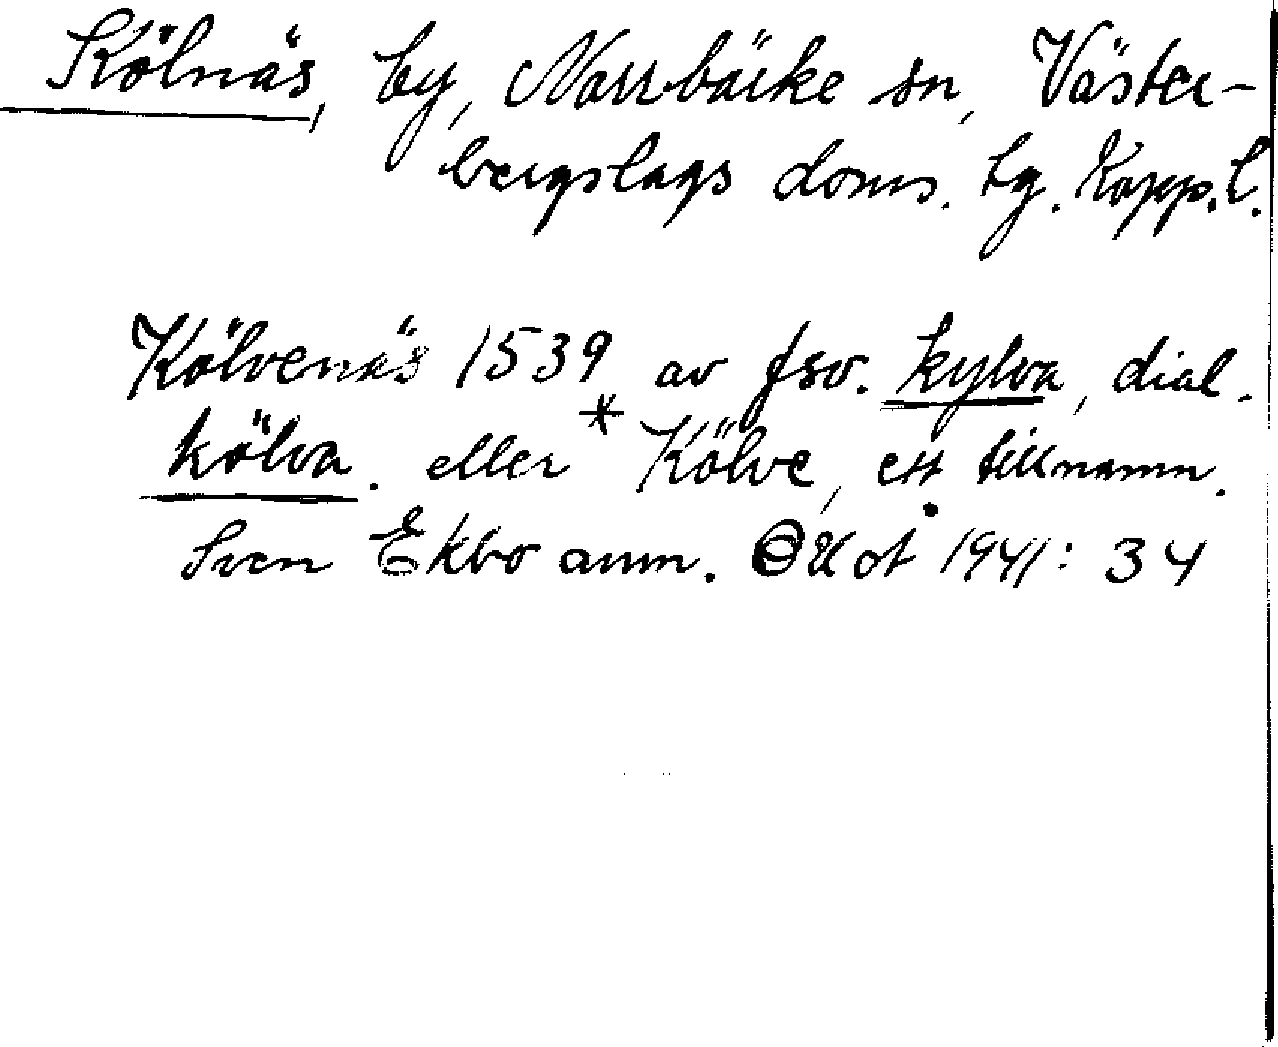 Kölnäs, by, Norrbärke sn, Väster-
bergslags doms. tg. Kopp.l.
Kölvenäs 1539 av fsv. kylva, dial.
kölva. eller *Kölve, ett tillnamn.
Sven Ekbo anm. 1941: 34